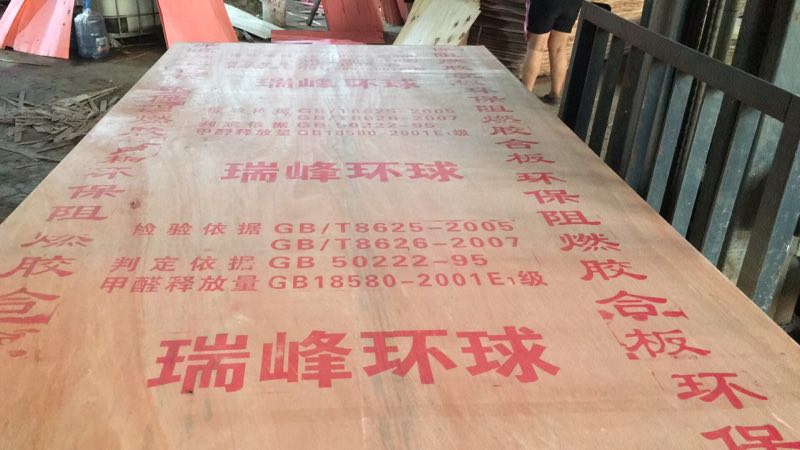 瑞峰环球
检验依据 GB/T8625-2005
GB/T8626-2007
判定依据 GB 50222-95
甲醛释放量 GB18580-2001E₁级
瑞峰环球
检验依据 GB/T8625-2005
GB/T8626-2007
判定依据 GB 50222-95
甲醛释放量 GB18580-2001E₁级
瑞峰环球
板环保阻燃胶合
环保阻燃胶合板环保阻燃胶合板环保